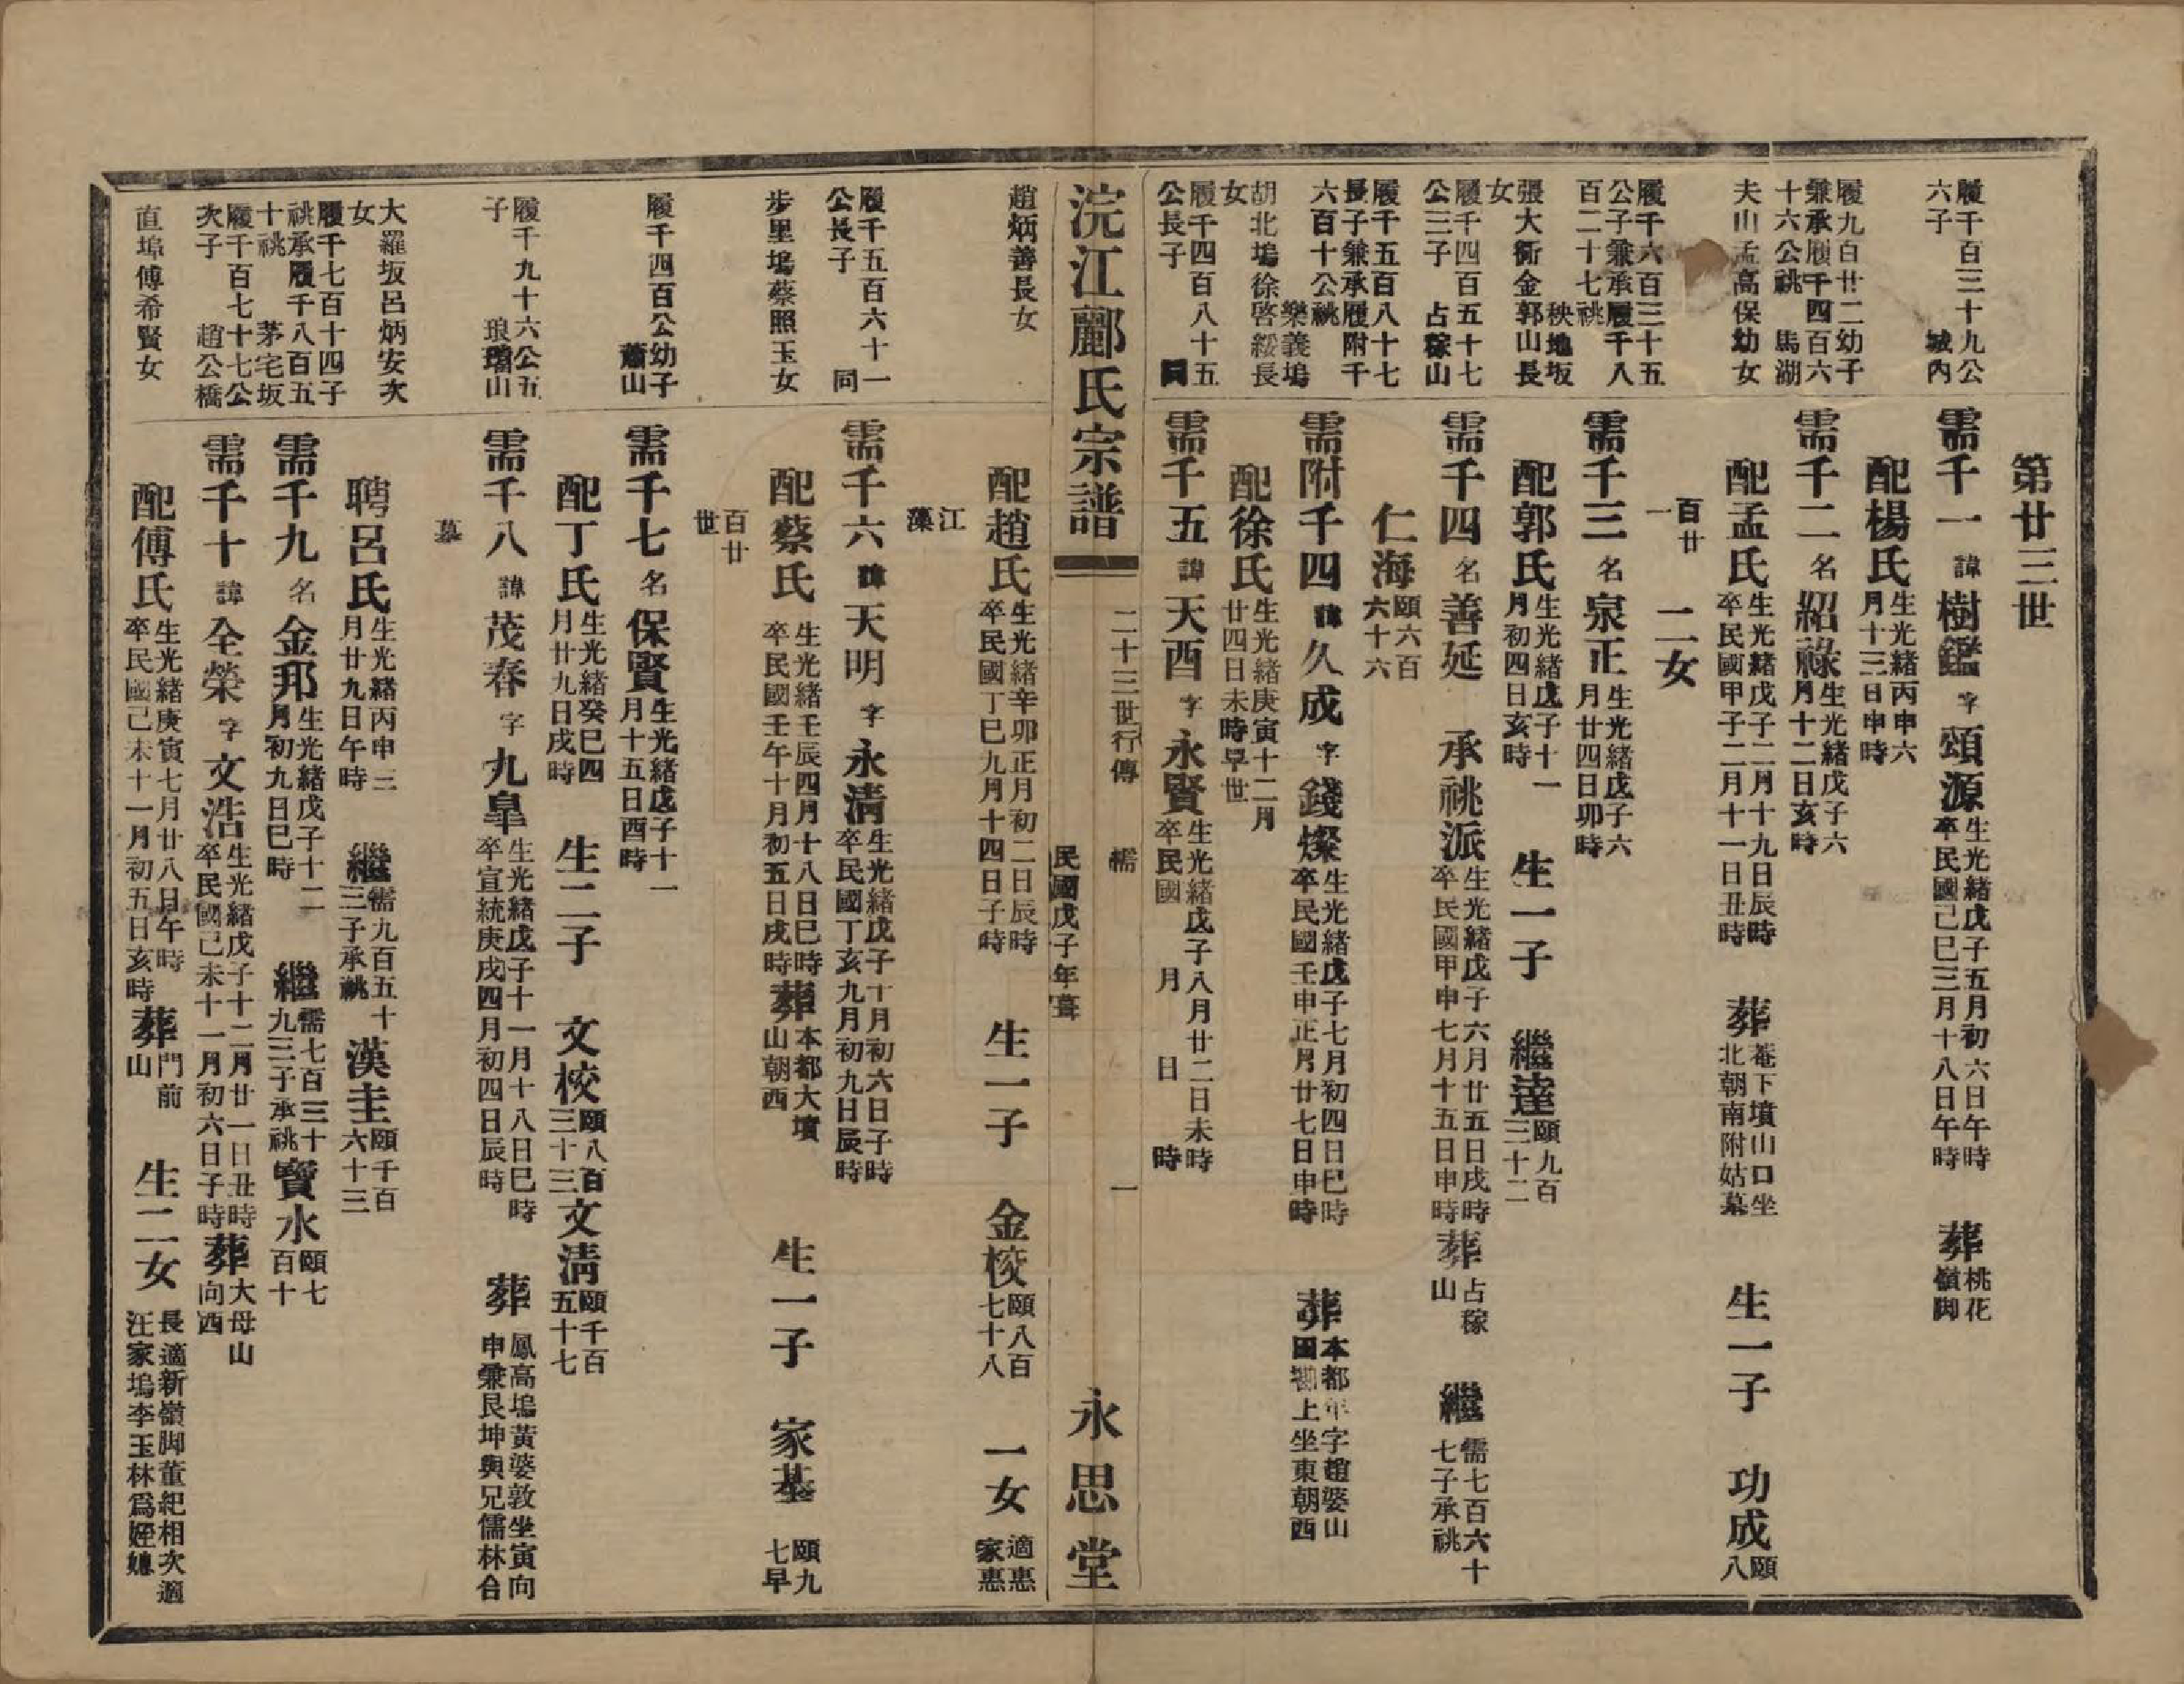 第廿三世
履千百三十九公
六子　城內
需千一諱樹鑑字頌源生光緒戊子五月初六日午時
卒民國己巳三月十八日午時　葬桃花
嶺脚
配楊氏生光緒丙申六
月十三日申時
履九百廿二幼子
兼承履千四百六
十六公祧　馬湖
需千二名紹祿生光緒戊子六
月十二日亥時
夫山孟高保幼女
配孟氏生光緒戊子二月十九日辰時
卒民國甲子二月十一日丑時　葬菴下墳山口坐
北朝南附姑墓　生一子　功成頤
八
百廿
一　二女
履千六百三十五
公子兼承履千八
百二十七祧
秧地坂
需千三名泉正生光緒戊子六
月廿四日卯時
張大衝金郭山長
女
配郭氏生光緒戊子十一
月初四日亥時　生一子　繼達頤九百
三十二
履千四百五十七
公三子　占稼山
需千四名善延　承祧派生光緒戊子六月廿五日戌時
卒民國甲申七月十五日申時葬占稼
山　繼需七百六十
七子承祧
仁海頤六百
六十六
履千五百八十七
長子兼承履附千
六百十公祧
樂義塢
需附千四諱久成字錢燦生光緒戊子七月初四日巳時
卒民國壬申正月廿七日申時　葬本都年字趙婆山
田磡上坐東朝西
胡北塢徐啓綏長
女
配徐氏生光緒庚寅十二月
廿四日未時早世
履千四百八十五
公長子　同
需千五諱天酉字永賢生光緒戊子八月廿二日未時
卒民國　月　日　時
浣江酈氏宗譜　二十三世行傳　需　一　永思堂
民國戊子年葺
趙炳善長女
配趙氏生光緒辛卯正月初二日辰時
卒民國丁巳九月十四日子時　生一子　金校頤八百
七十八　一女適惠
家惠
江
藻
履千五百六十一
公長子　同
需千六諱天明字永清生光緒戊子十月初六日子時
卒民國丁亥九月初九日辰時
步里塢蔡照玉女
配蔡氏生光緒壬辰四月十八日巳時
卒民國壬午十月初五日戌時葬本都大墳
山朝西　生一子　家基頤九
七早
百廿
世
履千四百公幼子
蕭山
需千七名保賢生光緒戊子十一
月十五日酉時
配丁氏生光緒癸巳四
月廿九日戌時　生二子　文校頤八百
三十三文清頤千百
五十七
履千九十六公五
子　琅瑠山
需千八諱茂春字九臯生光緒戊子十一月十八日巳時
卒宣統庚戌四月初四日辰時　葬鳳高塢黃婆敦坐寅向
申兼艮坤與兄儒林合
墓
大羅坂呂炳安次
女
聘呂氏生光緒丙申三
月廿九日午時　繼需九百五十
三子承祧　漢圭頤千百
六十三
履千七百十四子
祧承履千八百五
十祧　茅宅坂
需千九名金邦生光緒戊子十二
月初九日巳時　繼需七百三十
九三子承祧寶水頤七
百十
履千百七十七公
次子　趙公橋
需千十諱全榮字文浩生光緒戊子十二月廿一日丑時
卒民國己未十一月初六日子時葬大母山
向西
直埠傅希賢女
配傅氏生光緒庚寅七月廿八日午時
卒民國己未十一月初五日亥時葬門前
山　生二女長適新嶺脚董紀相次適
汪家塢李玉林爲姪媳